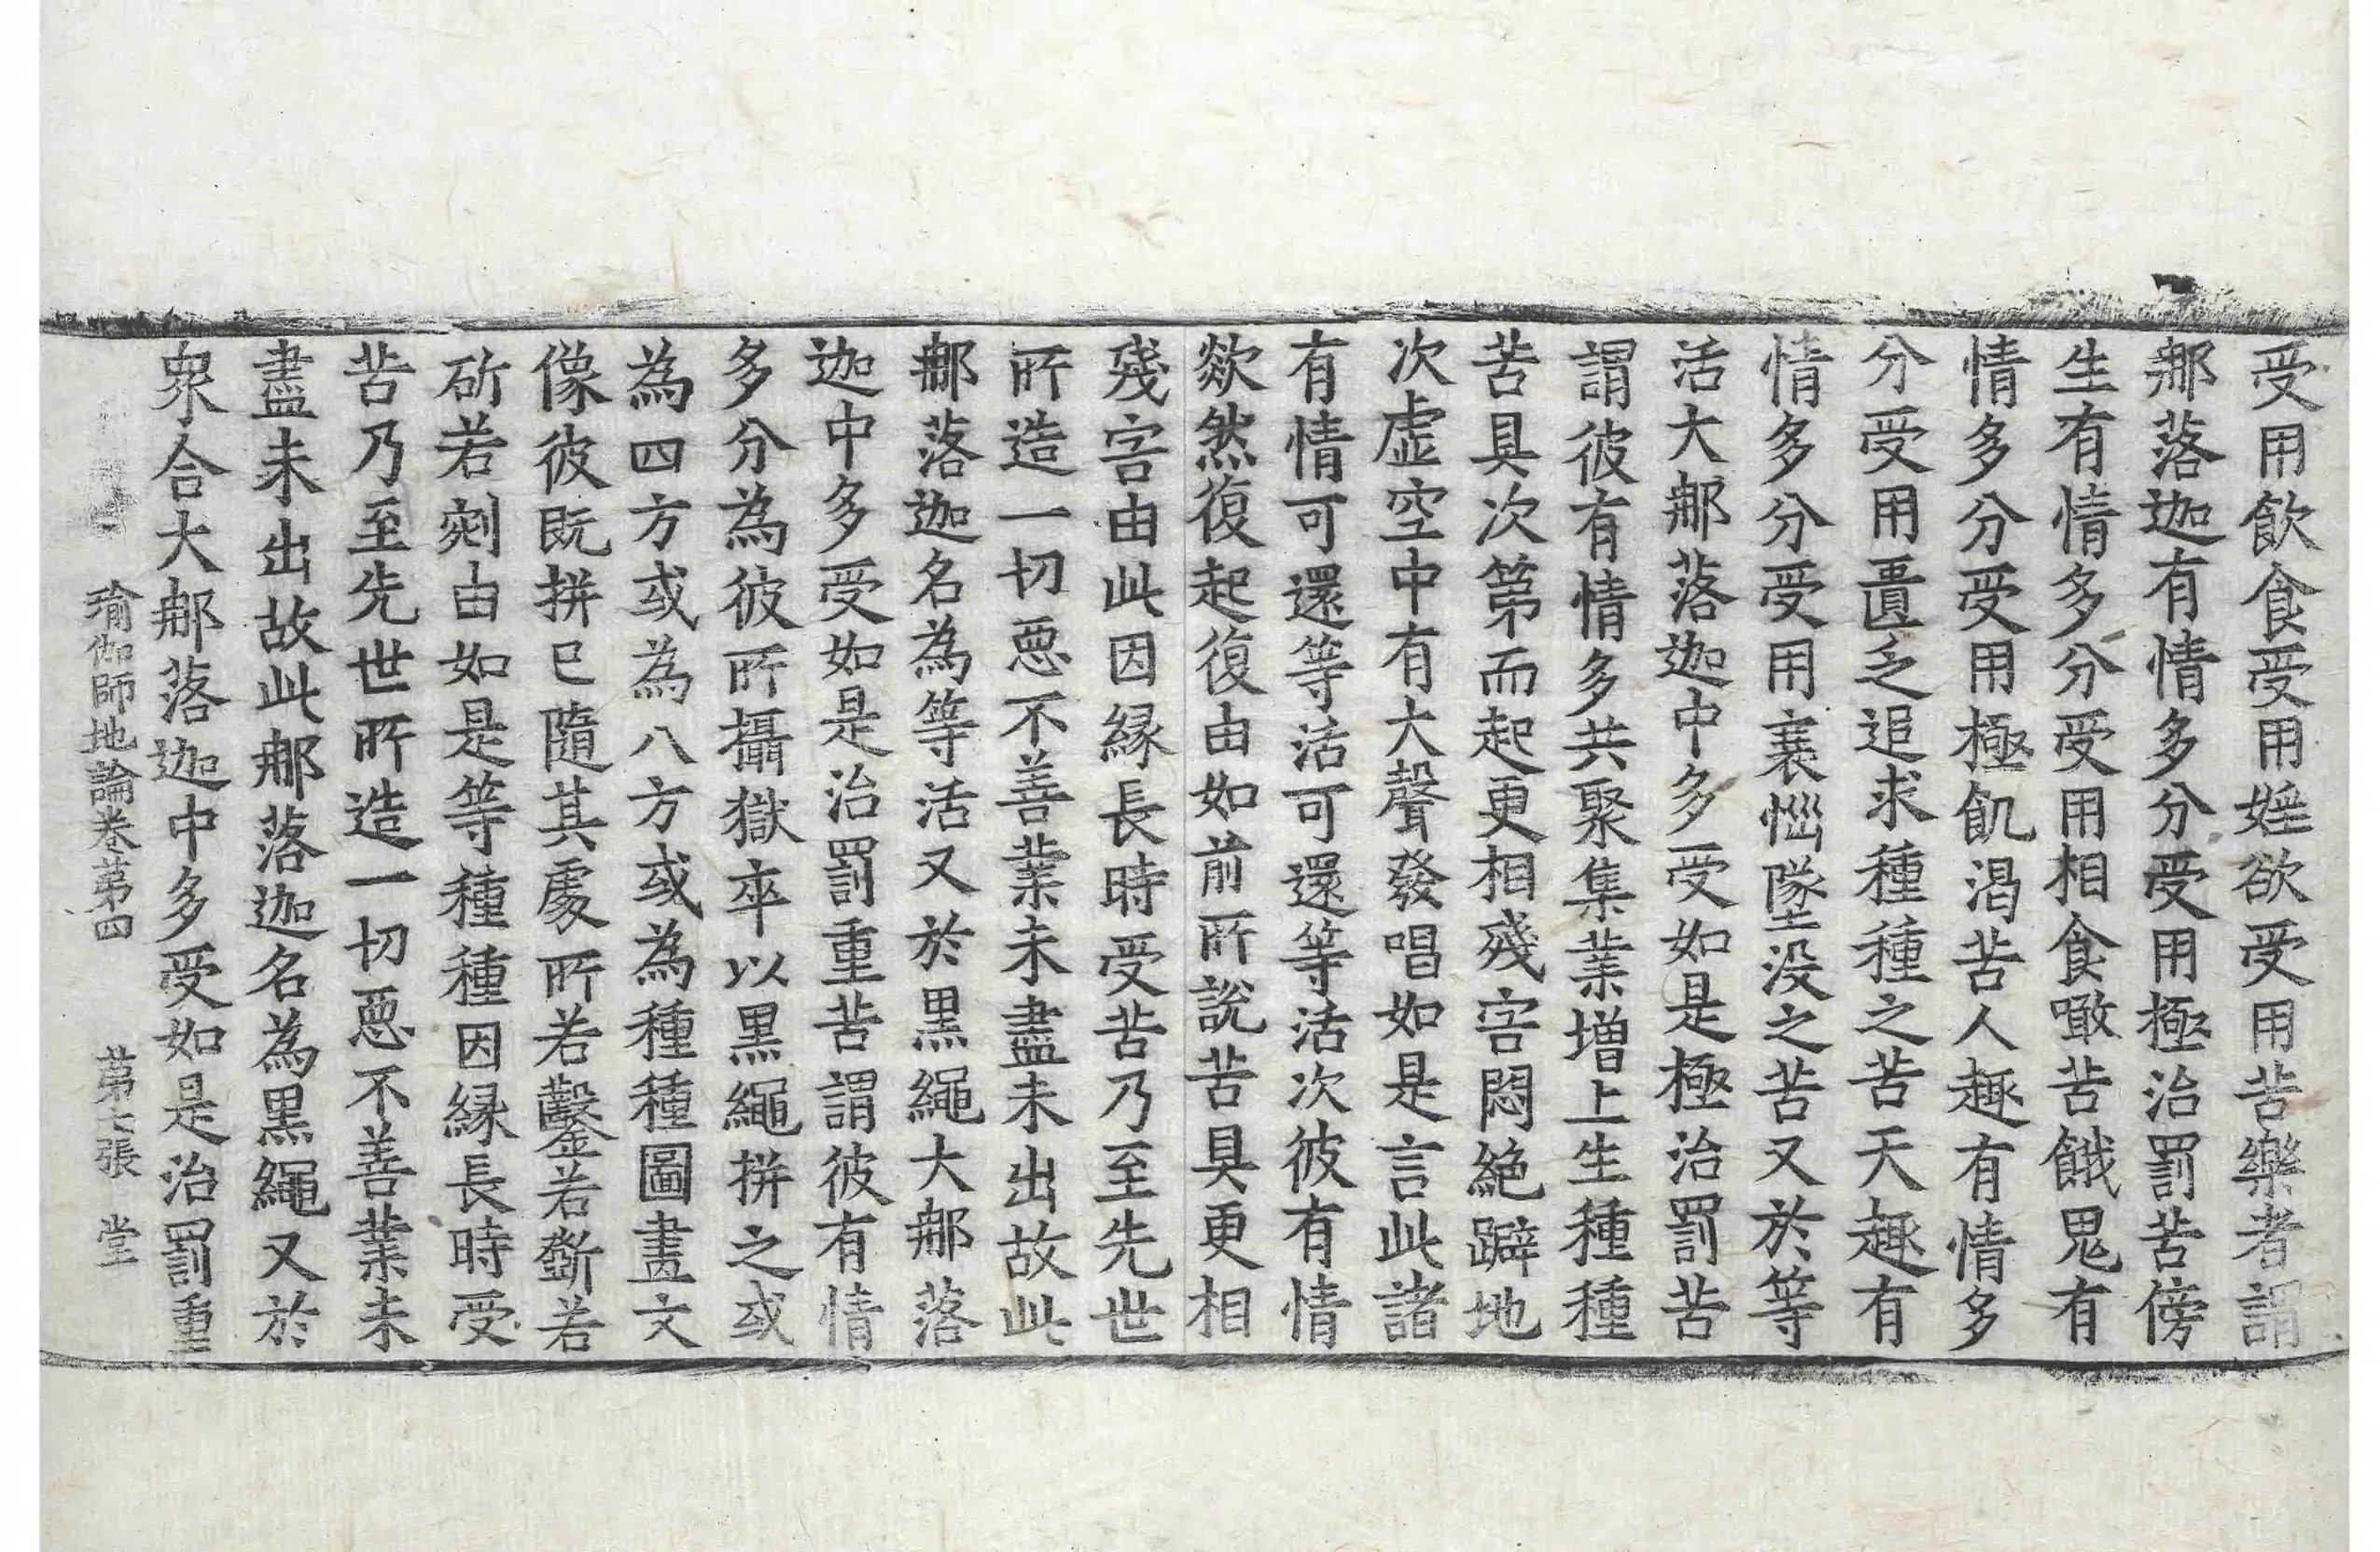 受用飮食受用婬欲受用苦樂者謂
那落迦有情多分受用極治罰苦傍
生有情多分受用相食噉苦餓鬼有
情多分受用極飢渴苦人趣有情多
分受用匱乏追求種種之苦天趣有
情多分受用衰惱墜没之苦又於等
活大那落迦中多受如是極治罰苦
謂彼有情多共聚集業增上生種種
苦具次第而起更相殘害悶絶躃地
次虛空中有大聲發唱如是言此諸
有情可還等活可還等活次彼有情
欻然復起復由如前所說苦具更相
殘害由此因緣長時受苦乃至先世
所造一切惡不善業未盡未出故此
那落迦名為等活又於黒繩大那落
迦中多受如是治罰重苦謂彼有情
多分為彼所攝獄卒以黒繩拼之或
為四方或為八方或為種種圖畫文
像彼既拼已隨其處所若鑿若斵若
斫若剜由如是等種種因緣長時受
苦乃至先世所造一切惡不善業未
盡未出故此那落迦名為黒繩又於
衆合大那落迦中多受如是治罰重
瑜伽師地論卷第四 第七張 堂